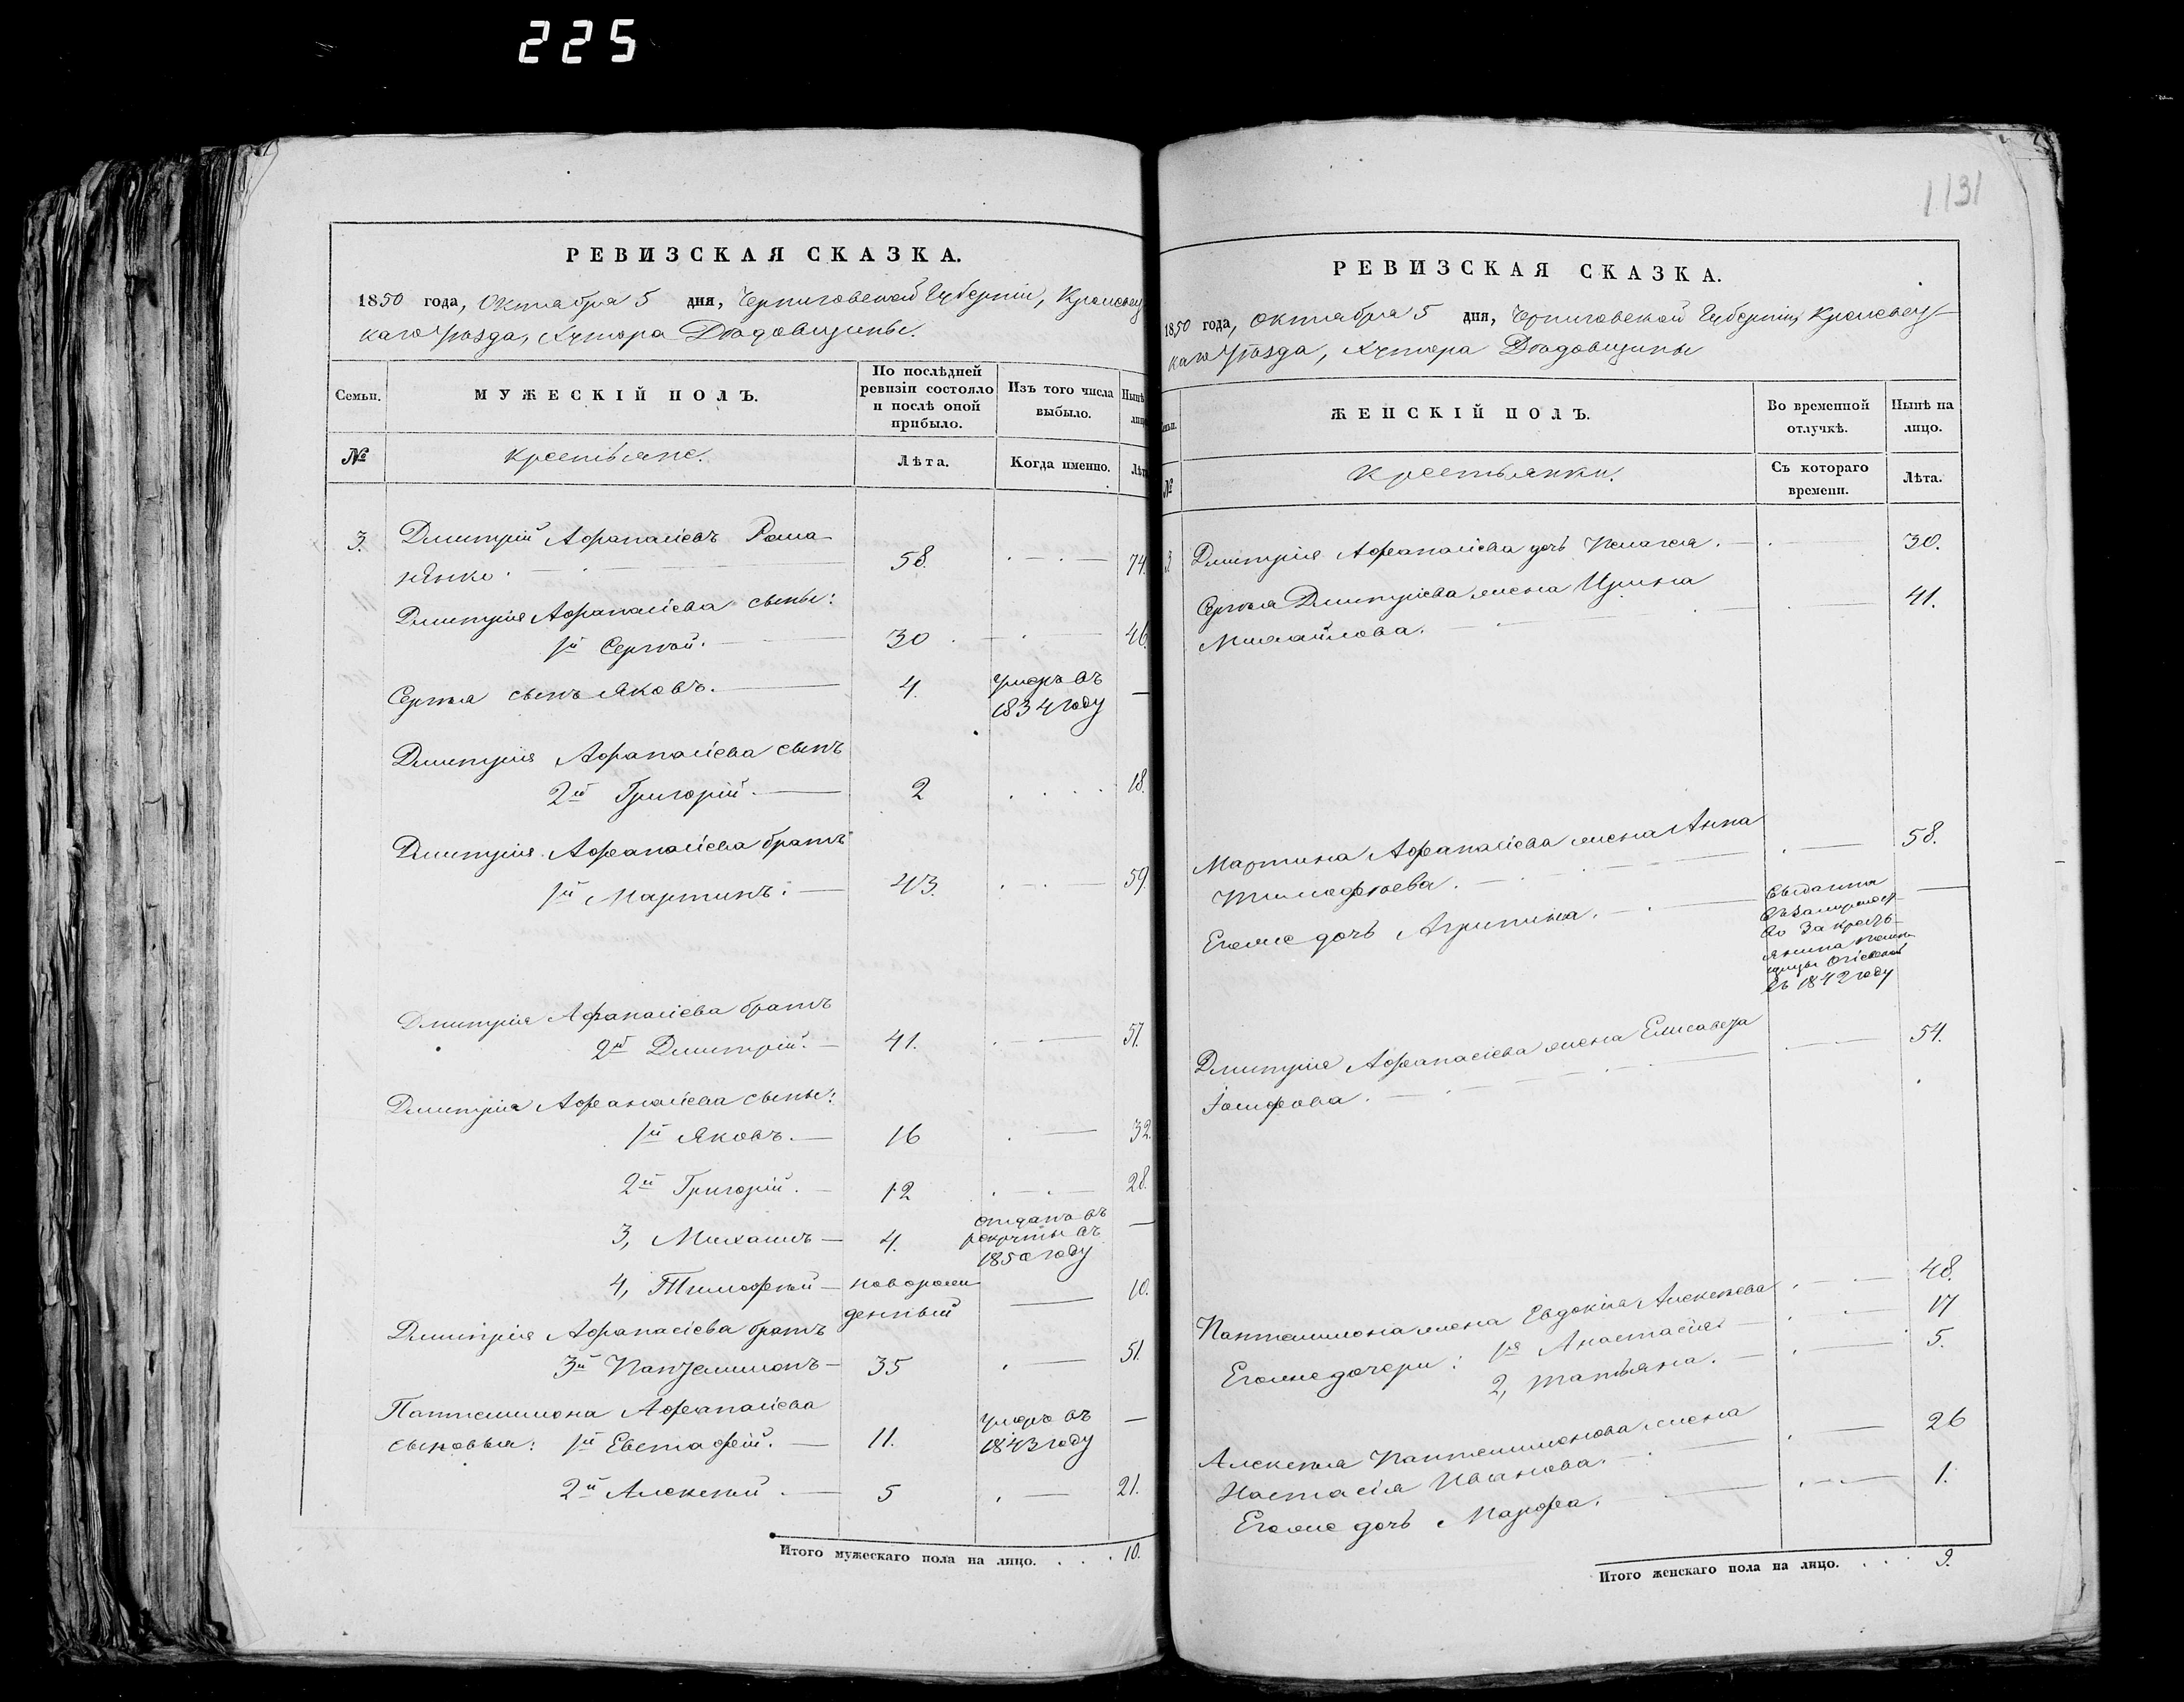 225
1131
РЕВИЗСКАЯ СКАЗКА.
1850 года, Октября 5 дня, Черниговской Губернiи, Кролевец
каго Уѣзда, Хутора Дѣдовщины.
Семьи.
МУЖЕСКIЙ ПОЛЪ.
По послѣдней
ревизiи состояло
и послѣ оной
прибыло.
Изъ того числа
выбыло.
Нынѣ
лицо
№
Крестьяне.
Лѣта.
Когда именно.
Лѣт
3. Дмитрiй Афанасiевъ Рома-
нѣнко. 58. 74.
Дмитрiя Афанасiева сыны:
1й Сергѣй. 30 46.
Сергѣя сынъ Яковъ. 4. умеръ въ
1834 году
Дмитрiя Афанасiева сынъ
2й Григорiй. 2 18.
Дмитрiя Афанасiева братъ
1й Мартинъ. 43. 59.
Дмитрiя Афанасiева братъ
2й Дмитрiй. 41. 57.
Дмитрiя Афанасiева сыны:
1й Яковъ. 16 32.
2й Григорiй. 12 28.
3, Михаилъ 4. отданъ въ
рекруты въ
1850 году
4, Тимофѣй новорож
денный 10.
Дмитрiя Афанасiева братъ
3й Пантелимонъ 35 51.
Пантелимона Афанасiева
сыновья: 1й Евстафiй. 11. умеръ въ
1843 году
2й Алексѣй 5 21.
Итого мужескаго пола на лицо. . . . 10.
РЕВИЗСКАЯ СКАЗКА.
1850 года, октября 5 дня, Черниговской Губернiи, Кролевец-
каго Уѣзда, Хутора Дѣдовщины
ЖЕНСКIЙ ПОЛЪ.
Во временной
отлучкѣ.
Нынѣ на
лицо.
№
Крестьянки.
Съ котораго
времени.
Лѣта.
3. Дмитрiя Афанасiева дочь Пелагея. 30.
Сергѣя Дмитрiева жена Ирина
Михайлова. 41.
Мартина Афанасiева жена Анна
Тимофѣева. 58.
Егоже дочь Агрипина. выдана
въ замужест-
во за кресть-
янина
въ 1842 году
Дмитрiя Афанасiева жена Елисавета
Iосифова. 54.
Пантелимона жена Евдокiя Алексѣева 48.
Егоже дочери: 1я Анастасiя 17
2, Татьяна. 5.
Алексѣя Пантелимонова жена
Настасiя Иванова. 26
Егоже дочь Марфа. 1.
Итого женскаго пола на лицо. . . . 9.